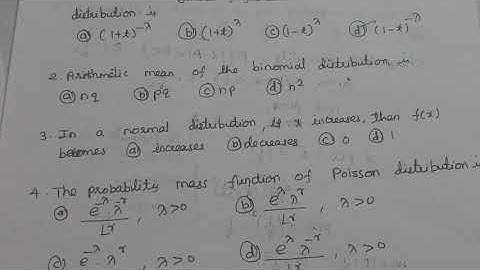 distribution is
ⓐ (1+t)^-λ ⓑ (1+t)^λ ⓒ (1-t)^λ ⓓ (1-t)^-λ
2. Arithmetic mean of the binomial distribution is
ⓐ nq ⓑ pq ⓒ np ⓓ n²
3. In a normal distribution, if x increases, then f(x)
becomes ⓐ increases ⓑ decreases ⓒ 0 ⓓ 1
4. The probability mass function of Poisson distribution is
ⓐ e^-λ · λ^r / Lr , λ>0 ⓑ e^λ · λ^r / Lr , λ>0
e^-λ · λ^-r , λ>0 ⓓ e^λ · λ^-r / Lr , λ>0